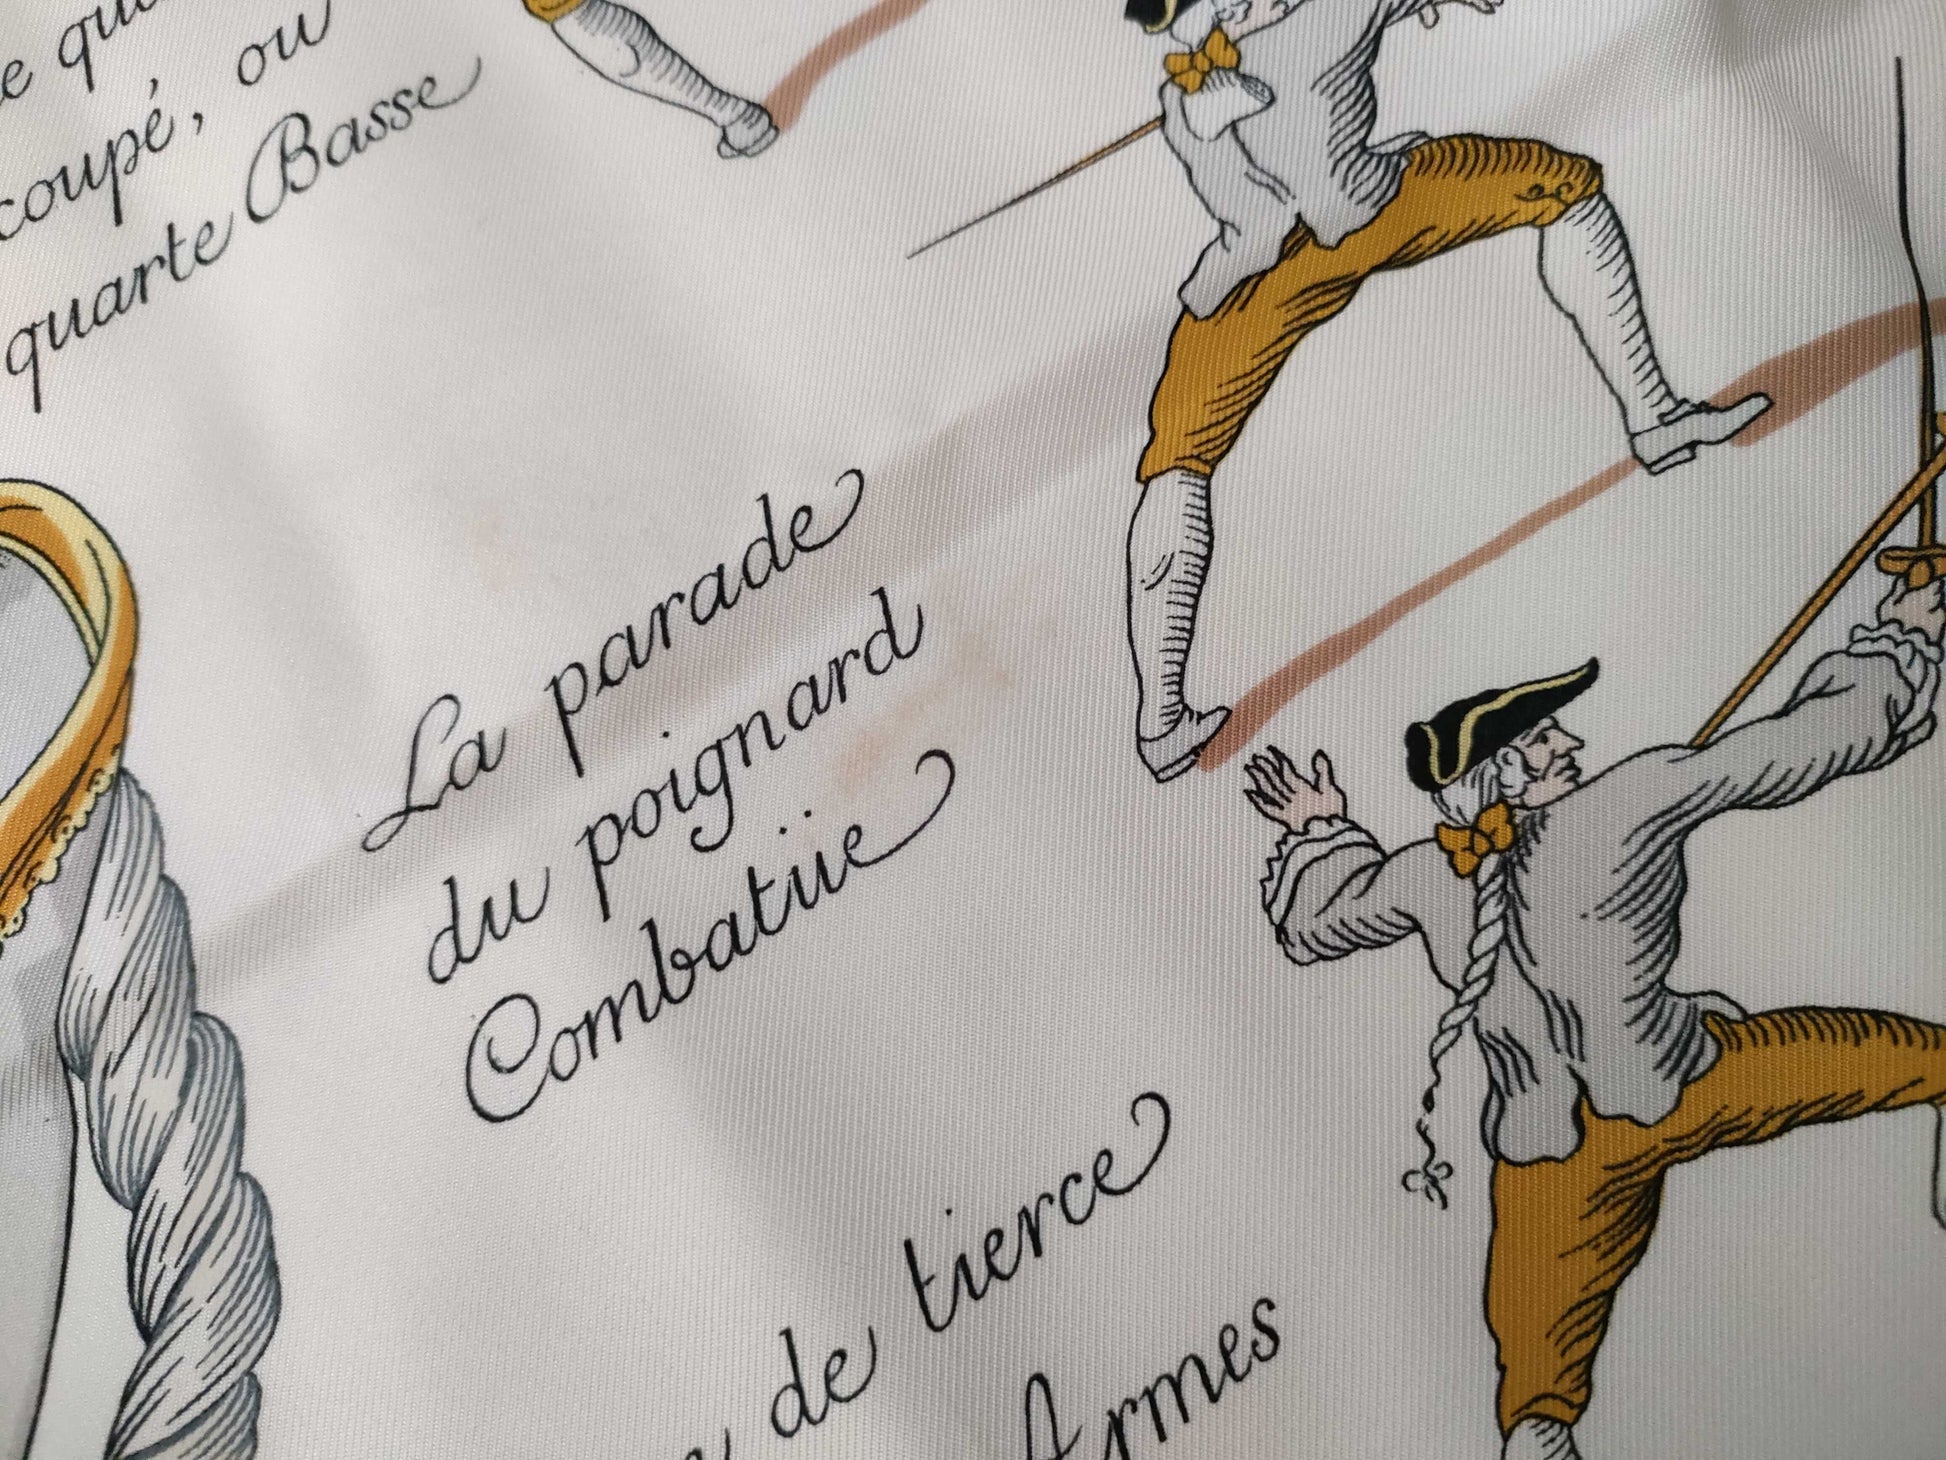 e qu
coupé, ou
quarte Basse
La parade
du poignard
Combatüe
de tierce
Armes